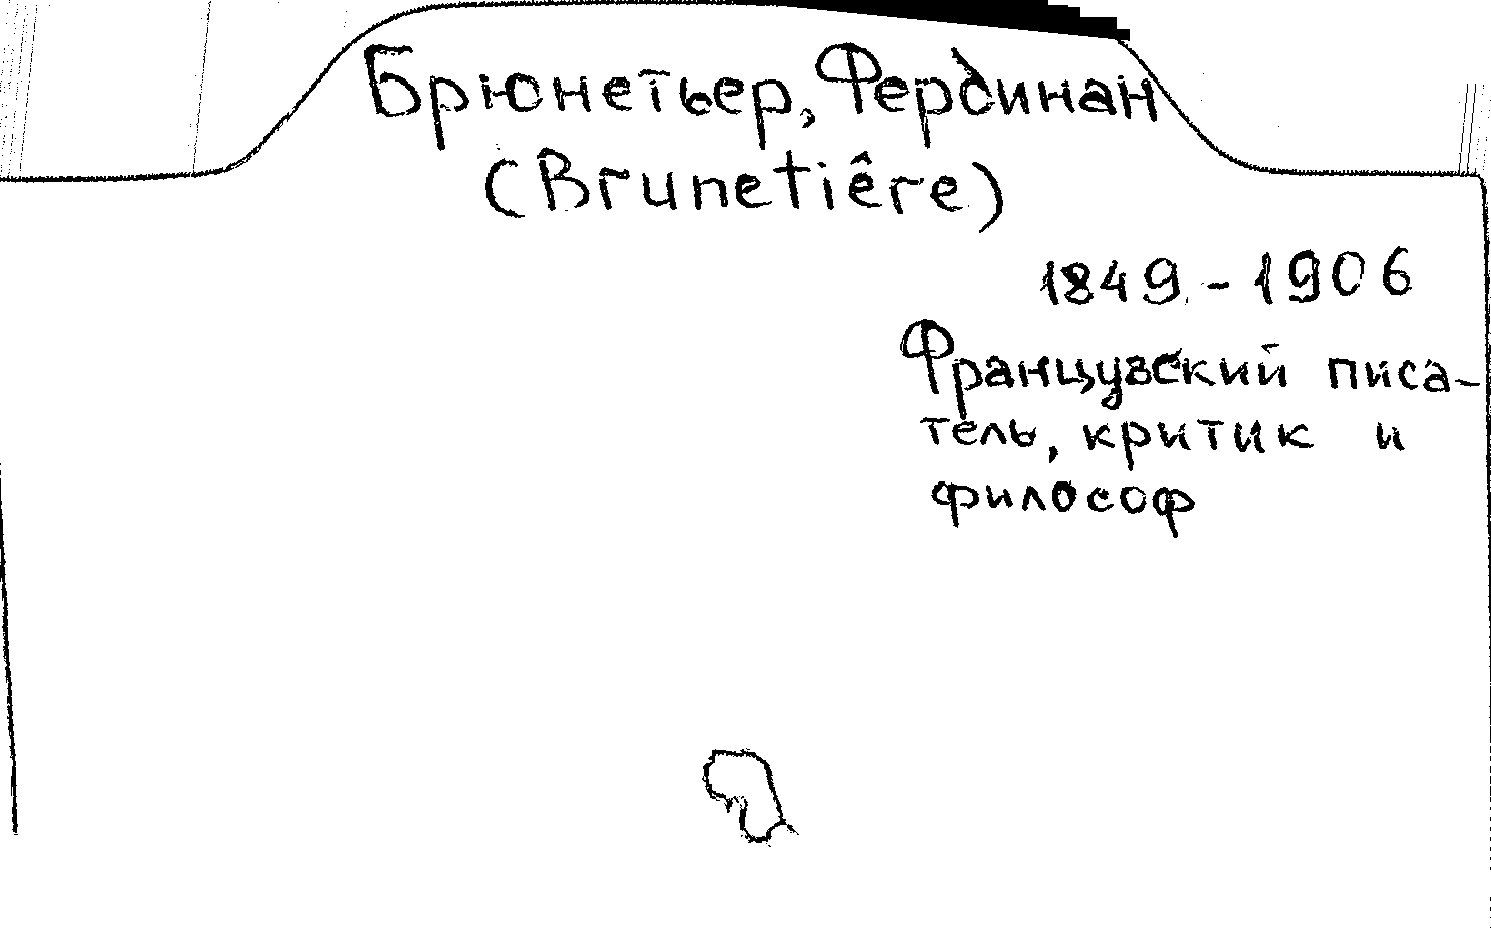 Брюнетьер, Фердинан
(Brunetiêre)
1849 - 1906
Французский писа-
тель, критик и
философ